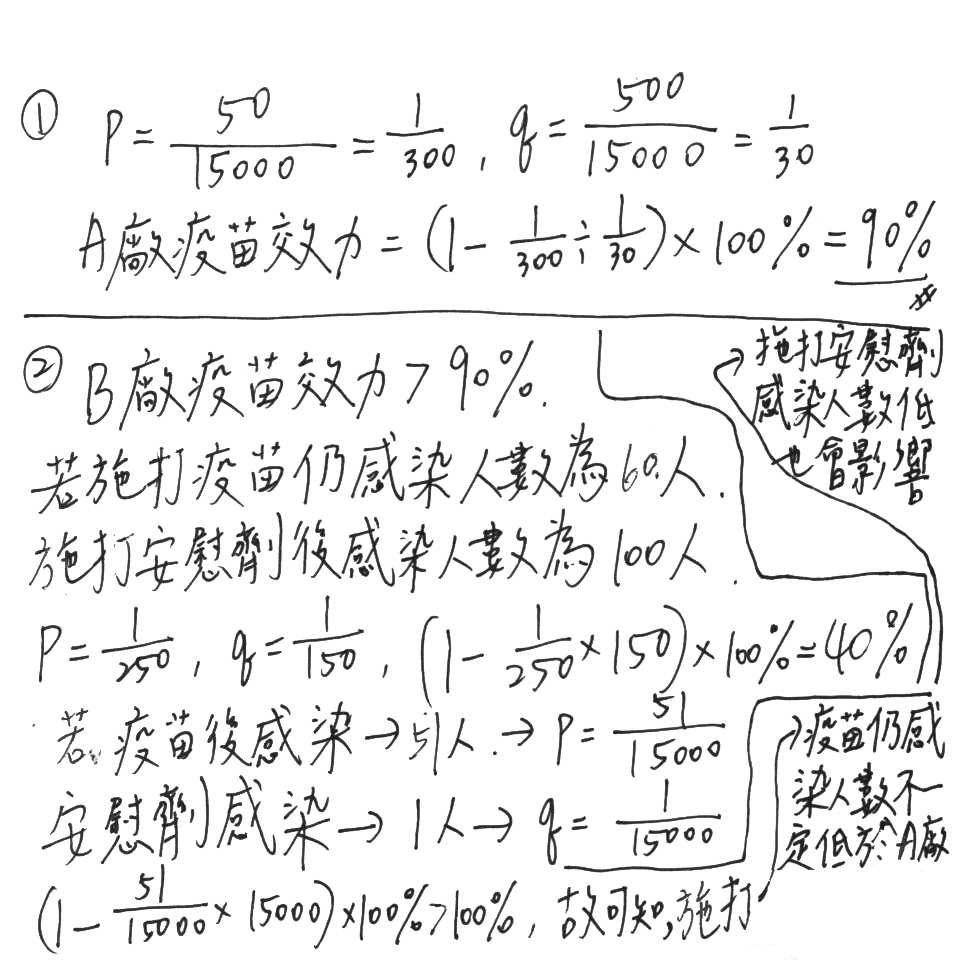 ① P = 50/15000 = 1/300 , q = 500/15000 = 1/30
A廠疫苗效力 = (1 - 1/300 ÷ 1/30) × 100% = 90% #
② B廠疫苗效力 > 90%.
若施打疫苗仍感染人數為60人.
施打安慰劑後感染人數為100人.
P = 1/250 , q = 1/150 , (1 - 1/250 × 150) × 100% = 40%
若疫苗後感染 → 51人. → P = 51/15000
安慰劑感染 → 1人 → q = 1/15000
(1 - 51/15000 × 15000) × 100% > 100% , 故可知,施打
→ 疫苗仍感
染人數不一
定低於A廠
→ 施打安慰劑
感染人數低
也會影響